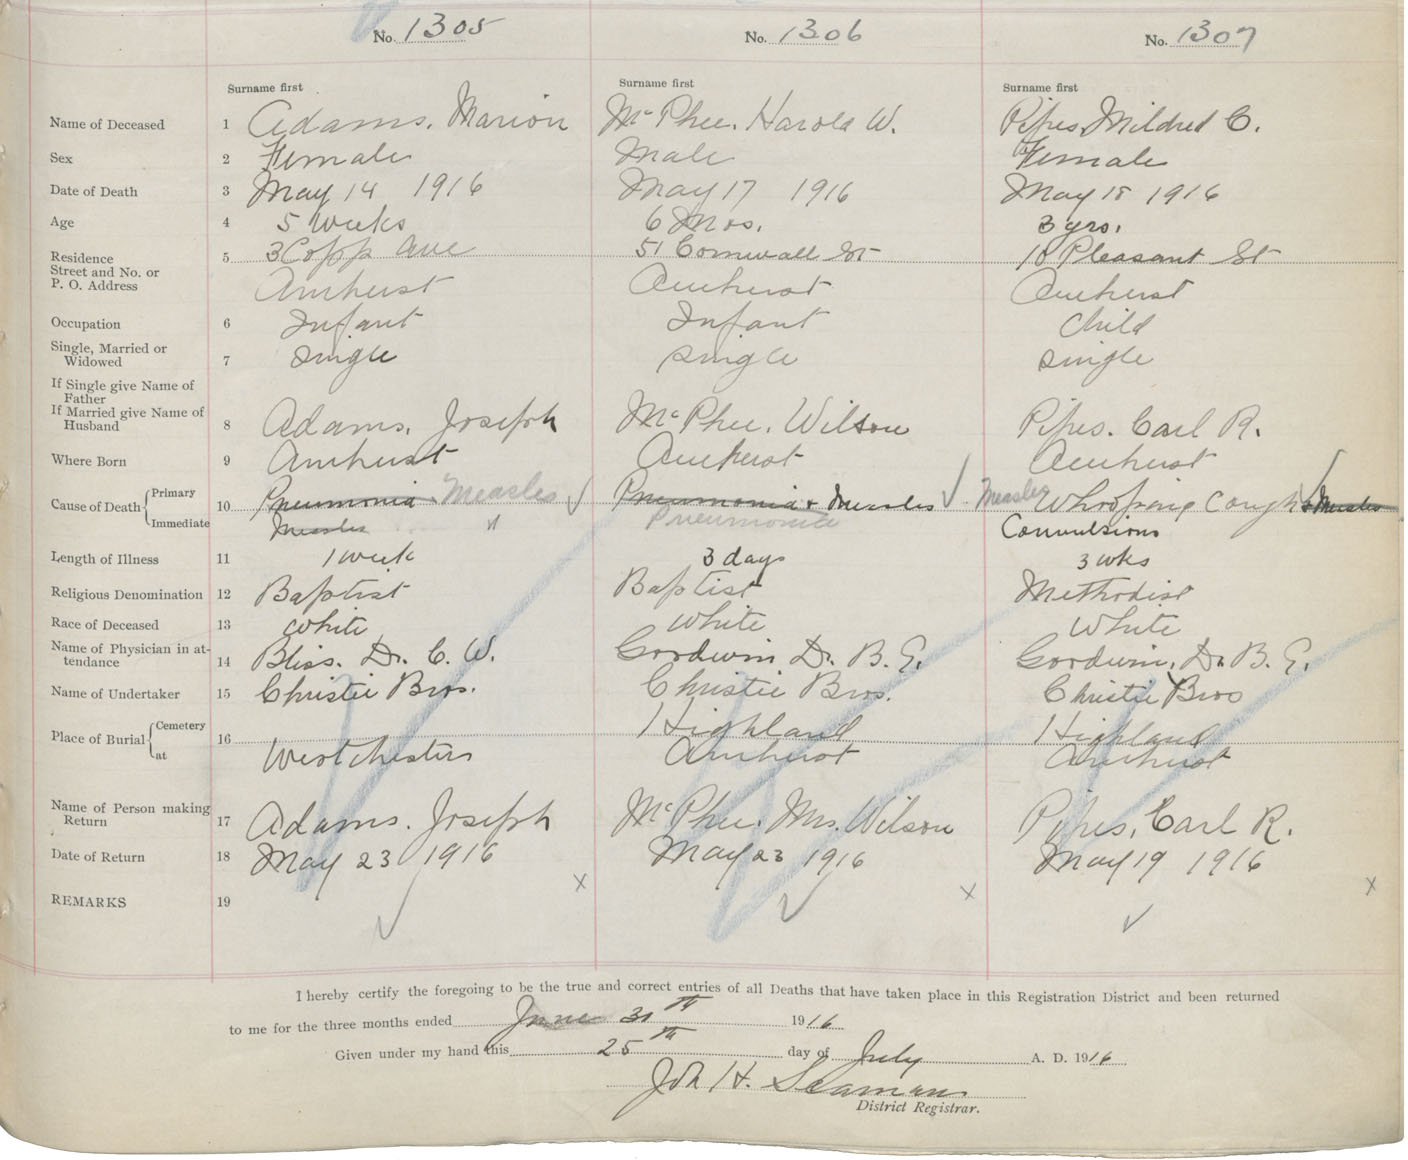 No. 1305 No. 1306 No. 1307
Surname first Surname first Surname first
Name of Deceased 1 Adams, Marion McPhee, Harold W. Pipes, Mildred C.
Sex 2 Female Male Female
Date of Death 3 May 14 1916 May 17 1916 May 18 1916
Age 4 5 weeks 6 Mos. 3 yrs.
Residence 5 3 Copp Ave 51 Cornwall St 18 Pleasant St
Street and No. or
P. O. Address Amherst Amherst Amherst
Occupation 6 Infant Infant Child
Single, Married or
Widowed 7 Single Single Single
If Single give Name of
Father
If Married give Name of
Husband 8 Adams, Joseph McPhee, Wilson Pipes. Carl R.
Where Born 9 Amherst Amherst Amherst
Cause of Death Primary 10 Pneumonia Measles Pneumonia & Measles Measles Whooping Cough & Measles
Immediate Measles Pneumonia Convulsions
Length of Illness 11 1 week 3 days 3 wks
Religious Denomination 12 Baptist Baptist Methodist
Race of Deceased 13 White White White
Name of Physician in at-
tendance 14 Bliss. Dr. C. W. Goodwin, Dr. B. E. Goodwin, Dr. B. E.
Name of Undertaker 15 Christie Bros. Christie Bros. Christie Bros
Place of Burial Cemetery 16 Highland Highland
at Westchester Amherst Amherst
Name of Person making
Return 17 Adams. Joseph McPhee, Mrs. Wilson Pipes, Carl R.
Date of Return 18 May 23 1916 May 23 1916 May 19 1916
REMARKS 19
I hereby certify the foregoing to be the true and correct entries of all Deaths that have taken place in this Registration District and been returned
to me for the three months ended June 31th 1916
Given under my hand this 25th day of July A. D. 1916
Jon H. Seaman
District Registrar.